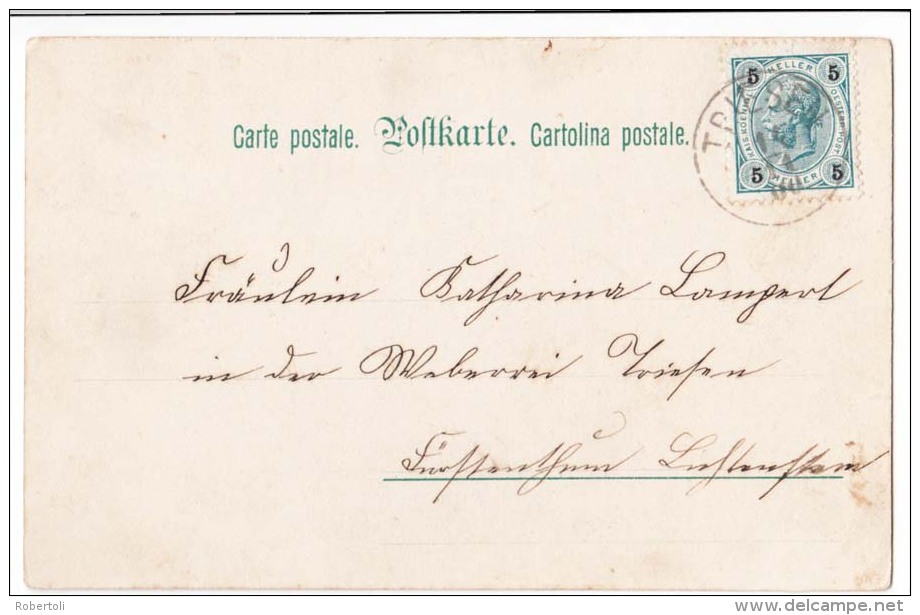 Carte postale. Postkarte. Cartolina postale.
5 HELLER 5
KAIS. KOENIGL. OESTERR. POST
5 HELLER 5
TRIESEN
00
Fräulein Katharina Lampert
in der Weberrei Triesen
Fürstenthum Lichtenstein
Robertoli
delcampe.net